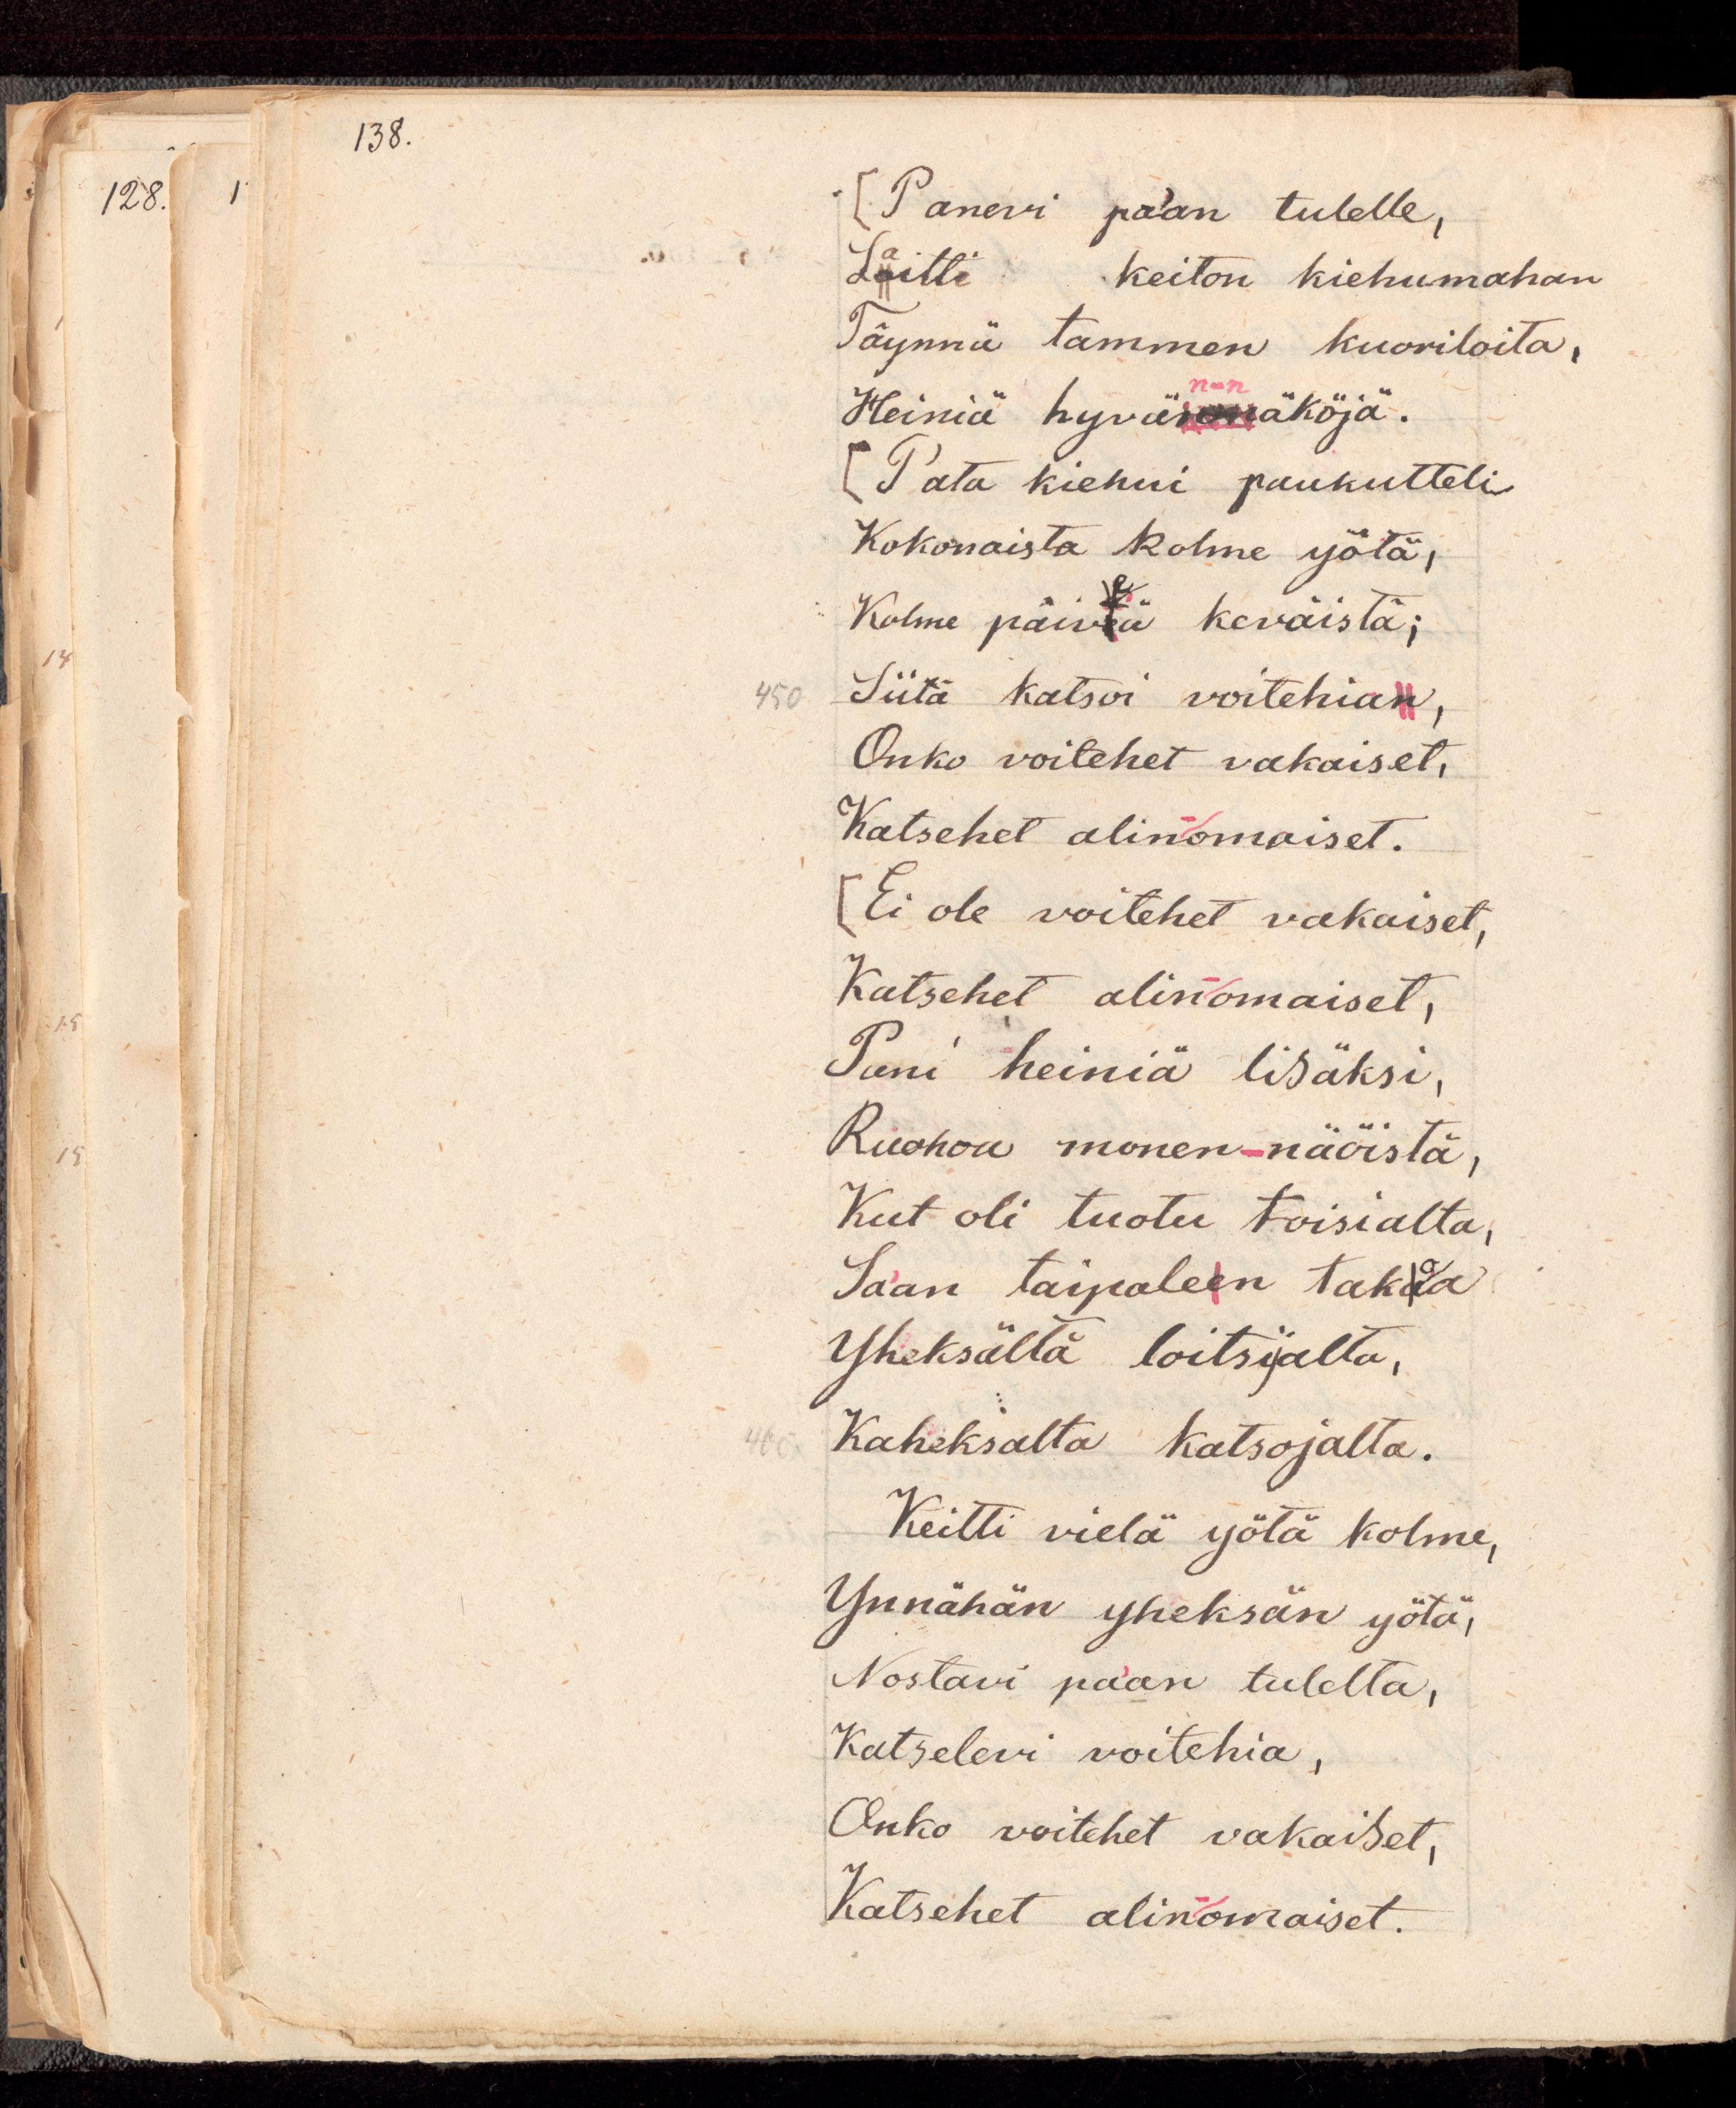 138.
128.
[Panevi pa'an tulelle,
Laitti keiton kiehumahan
Täynnä tammen kuoriloita,
n-n
Heiniä hyvän-näköjä.
[Pata kiehui paukutteli
Kokonaista kolme yötä,
Kolme päiveä keväistä;
450 Siitä katsoi voitehian,
Onko voitehet vakaiset,
Katsehet alin-omaiset.
[Ei ole voitehet vakaiset,
Katsehet alin-omaiset,
Pani heiniä lisäksi,
Ruohoa monen-näöistä,
Kut oli tuotu toisialta,
Sa'an taipaleen takoa
Yheksältä loitsijalta,
460 Kaheksalta katsojalta.
Keitti vielä yötä kolme,
Ynnähän yheksän yötä,
Nostavi pa'an tulelta,
Katselevi voitehia,
Onko voitehet vakaiset,
Katsehet alin-omaiset.